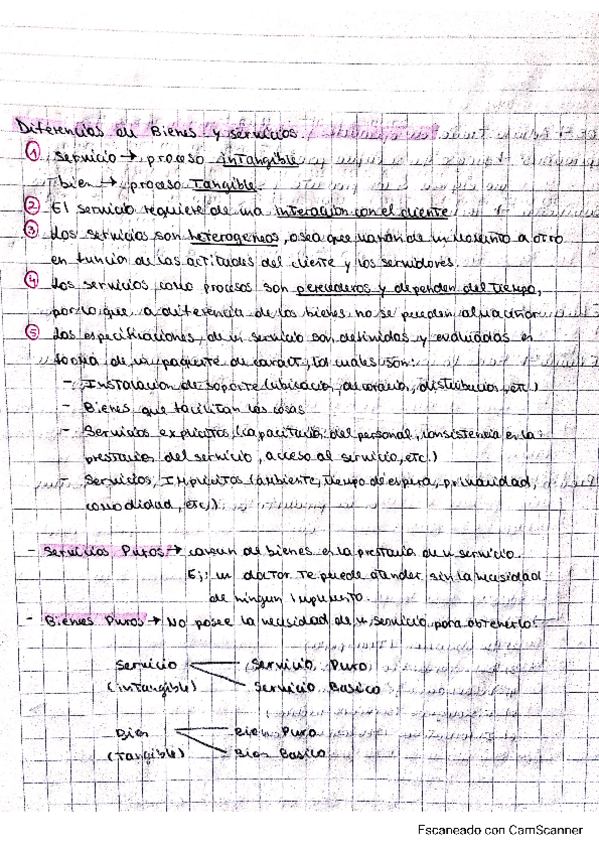 Diferencias de Bienes y servicios.
① Servicio → proceso intangible
bien → proceso Tangible.
② El servicio requiere de una interación con el cliente
③ Los servicios son heterogeneos, o sea que varian de un momento a otro
en funcia de las actitudes del cliente y los servidores.
④ Los servicios como procesos son perecederos y dependen del tiempo,
por lo que, a diferencia de los bienes, no se pueden almacenar
⑤ Las especificaciones de un servicio son definidas y evaluadas en
forma de un paquete de caract, los cuales son:
- Instalacion de soporte (ubicación, decoración, distribucion, etc)
- Bienes que facilitan las cosas
- Servicios explicitos (capacitación del personal, consistencia en la
prestación del servicio, acceso al servicio, etc.)
- Servicios Implicitos (ambiente, tiempo de espera, privacidad,
comodidad, etc).
- Servicios Puros → de bienes en la prestación de un servicio.
Ej: un doctor te puede atender sin la necesidad
de ningun implemento.
- Bienes Puros → No posee la necesidad de un servicio para obtenerlo
Servicio Servicio Puro
(intangible) Servicio Basico
Bien Bien Puro
(Tangible) Bien Basico
Escaneado con CamScanner